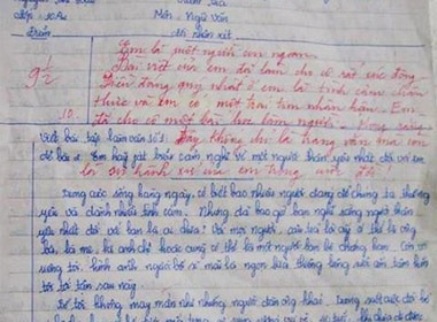 Lớp: 10A1 Môn: Ngữ Văn
Điểm Lời nhận xét
Em là một người con ngoan.
9 1/2 Bài viết của em đã làm cho cô rất xúc động.
Điều đáng quý nhất ở em là tình cảm chân
thực và em có một trái tim nhân hậu. Em
10 đã cho cô một bài học làm người. Mong rằng
Viết bài tập làm văn số 1: đây không chỉ là trang văn mà còn
Đề bài: Em hãy phát biểu cảm nghĩ về một người thân yêu nhất đối với em
là sự hành xử của em trong cuộc đời!
Trong cuộc sống hàng ngày, có biết bao nhiêu người đáng để chúng ta thương
yêu và dành nhiều tình cảm. Nhưng đã bao giờ bạn nghĩ rằng người thân
yêu nhất đối với bạn là ai chưa? Với mọi người, câu trả lời ấy có thể là ông
bà, là mẹ, là anh chị hoặc cũng có thể là một người bạn bè chẳng hạn. Còn với
riêng tôi, hình ảnh người bố sẽ mãi là ngọn lửa thiêng liêng sưởi ấm tâm hồn
tôi tới tận sau này.
Bố tôi không may mắn như những người đàn ông khác. Trong suốt cuộc đời bố